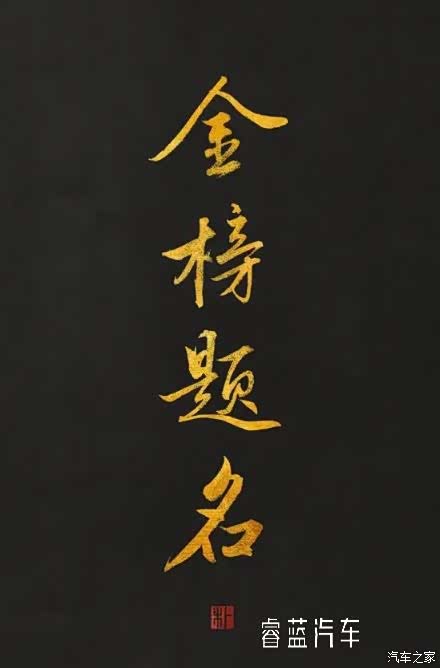 金榜题名
睿蓝汽车
汽车之家